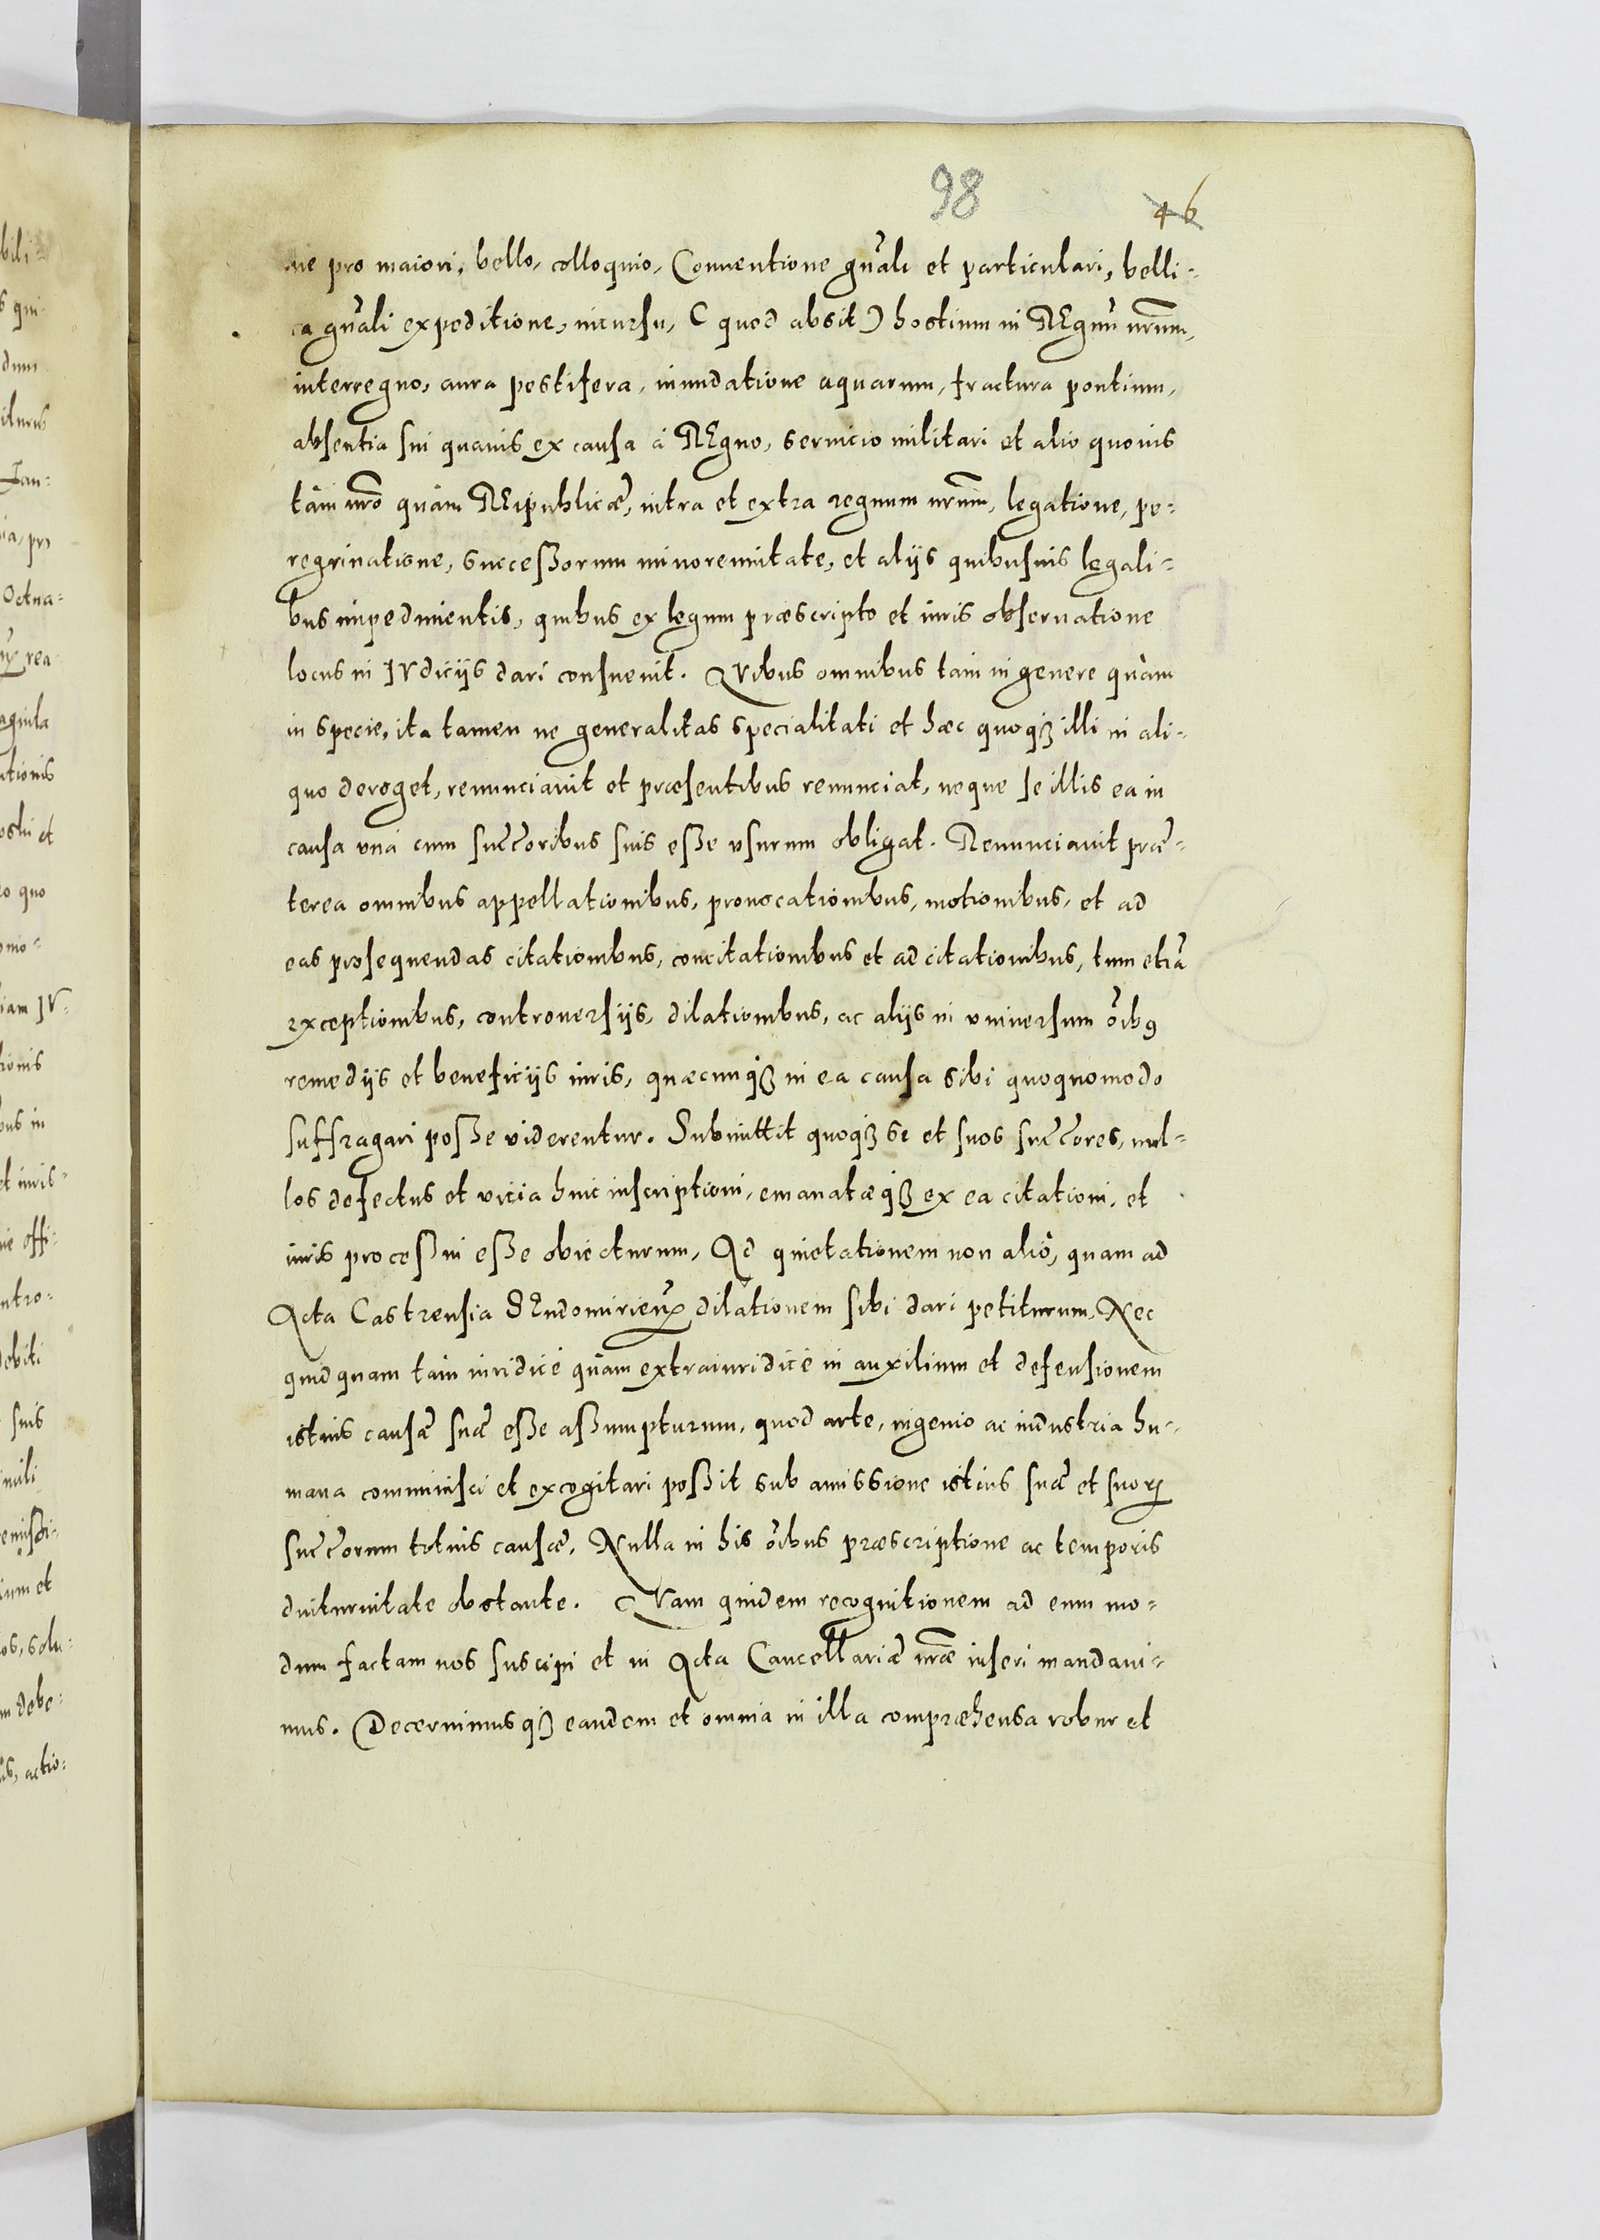 98
46
ne pro maiori, bello, colloquio, Conuentione gn̄ali et particulari, belli-
ca gn̄ali expeditione, incursu, ( quod absit ) hostium in REgnū nr̄um,
interregno, aura pestifera, inundatione aquarum, fractura pontium,
absentia sui quauis ex causa à REgno, seruicio militari et alio quouis
tàm nr̄o quàm REipublicæ, intra et extra regnum nr̄um, legatione, pe-
regrinatione, successorum minorennitate, et alijs quibusuis legali-
bus impedimentis, quibus ex legum præscripto et iuris obseruatione
locus in IVdicijs dari consueuit. QVibus omnibus tam in genere quàm
in specie, ita tamen ne generalitas specialitati et hæc quoqꝫ illi in ali-
quo deroget, renunciauit et præsentibus renunciat, neque se illis ea in
causa vnà cum succ̄oribus suis esse vsurum obligat. Renunciauit præ-
terea omnibus appellationibus, prouocationibus, motionibus, et ad
eas prosequendas citationibus, concitationibus et ad citationibus, tum etiā
exceptionibus, controuersijs, dilationibus, ac alijs in vniuersum oībꝰ
remedijs et beneficijs iuris, quæcunqꝫ in ea causa sibi quoquomodo
suffragari posse viderentur. Submittit quoqꝫ se et suos succ̄ores, nul-
los defectus et vicia huic inscriptioni, emanatæqꝫ ex ea citationi, et
iuris processui esse obiecturum, Ad quietationem non aliò, quam ad
Acta Castrensia SEndomirien̄ꝫ dilationem sibi dari petiturum, Nec
quidquam tàm iuridicè quàm extraiuridicè in auxilium et defensionem
istius causæ suæ esse assumpturum, quod arte, ingenio ac industria hu-
mana comminisci et excogitari possit sub amissione istius suæ et suoꝝ
succ̄orum totius causæ, Nulla in his oībus præscriptione ac temporis
diuturnitate obstante. QVam quidem recognitionem ad eum mo-
dum factam nos suscipi et in Acta Cancellariæ nr̄æ inseri mandaui-
mus. Decernimusqꝫ eandem et omnia in illa compræhensa robur et